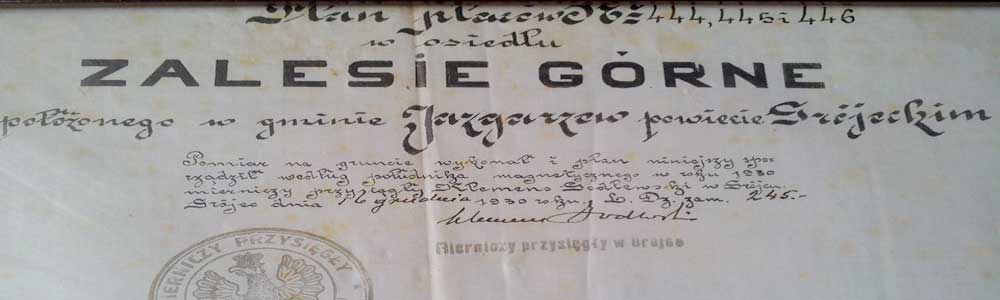 Plan placów № 444, 445 i 446
w osiedlu
ZALESIE GÓRNE
położonego w gminie Jazgarzew powiecie Grójeckim
Pomiar na gruncie wykonał i plan niniejszy spo-
rządził według południka magnetycznego w roku 1930
mierniczy przysięgły Klemens Godlewski w Grójcu.
Grójec dnia 16 grudnia 1930 roku. L. Dz. zam. 245.-
Klemens Godlewski
Mierniczy przysięgły w Grójce
MIERNICZY PRZYSIĘGŁY